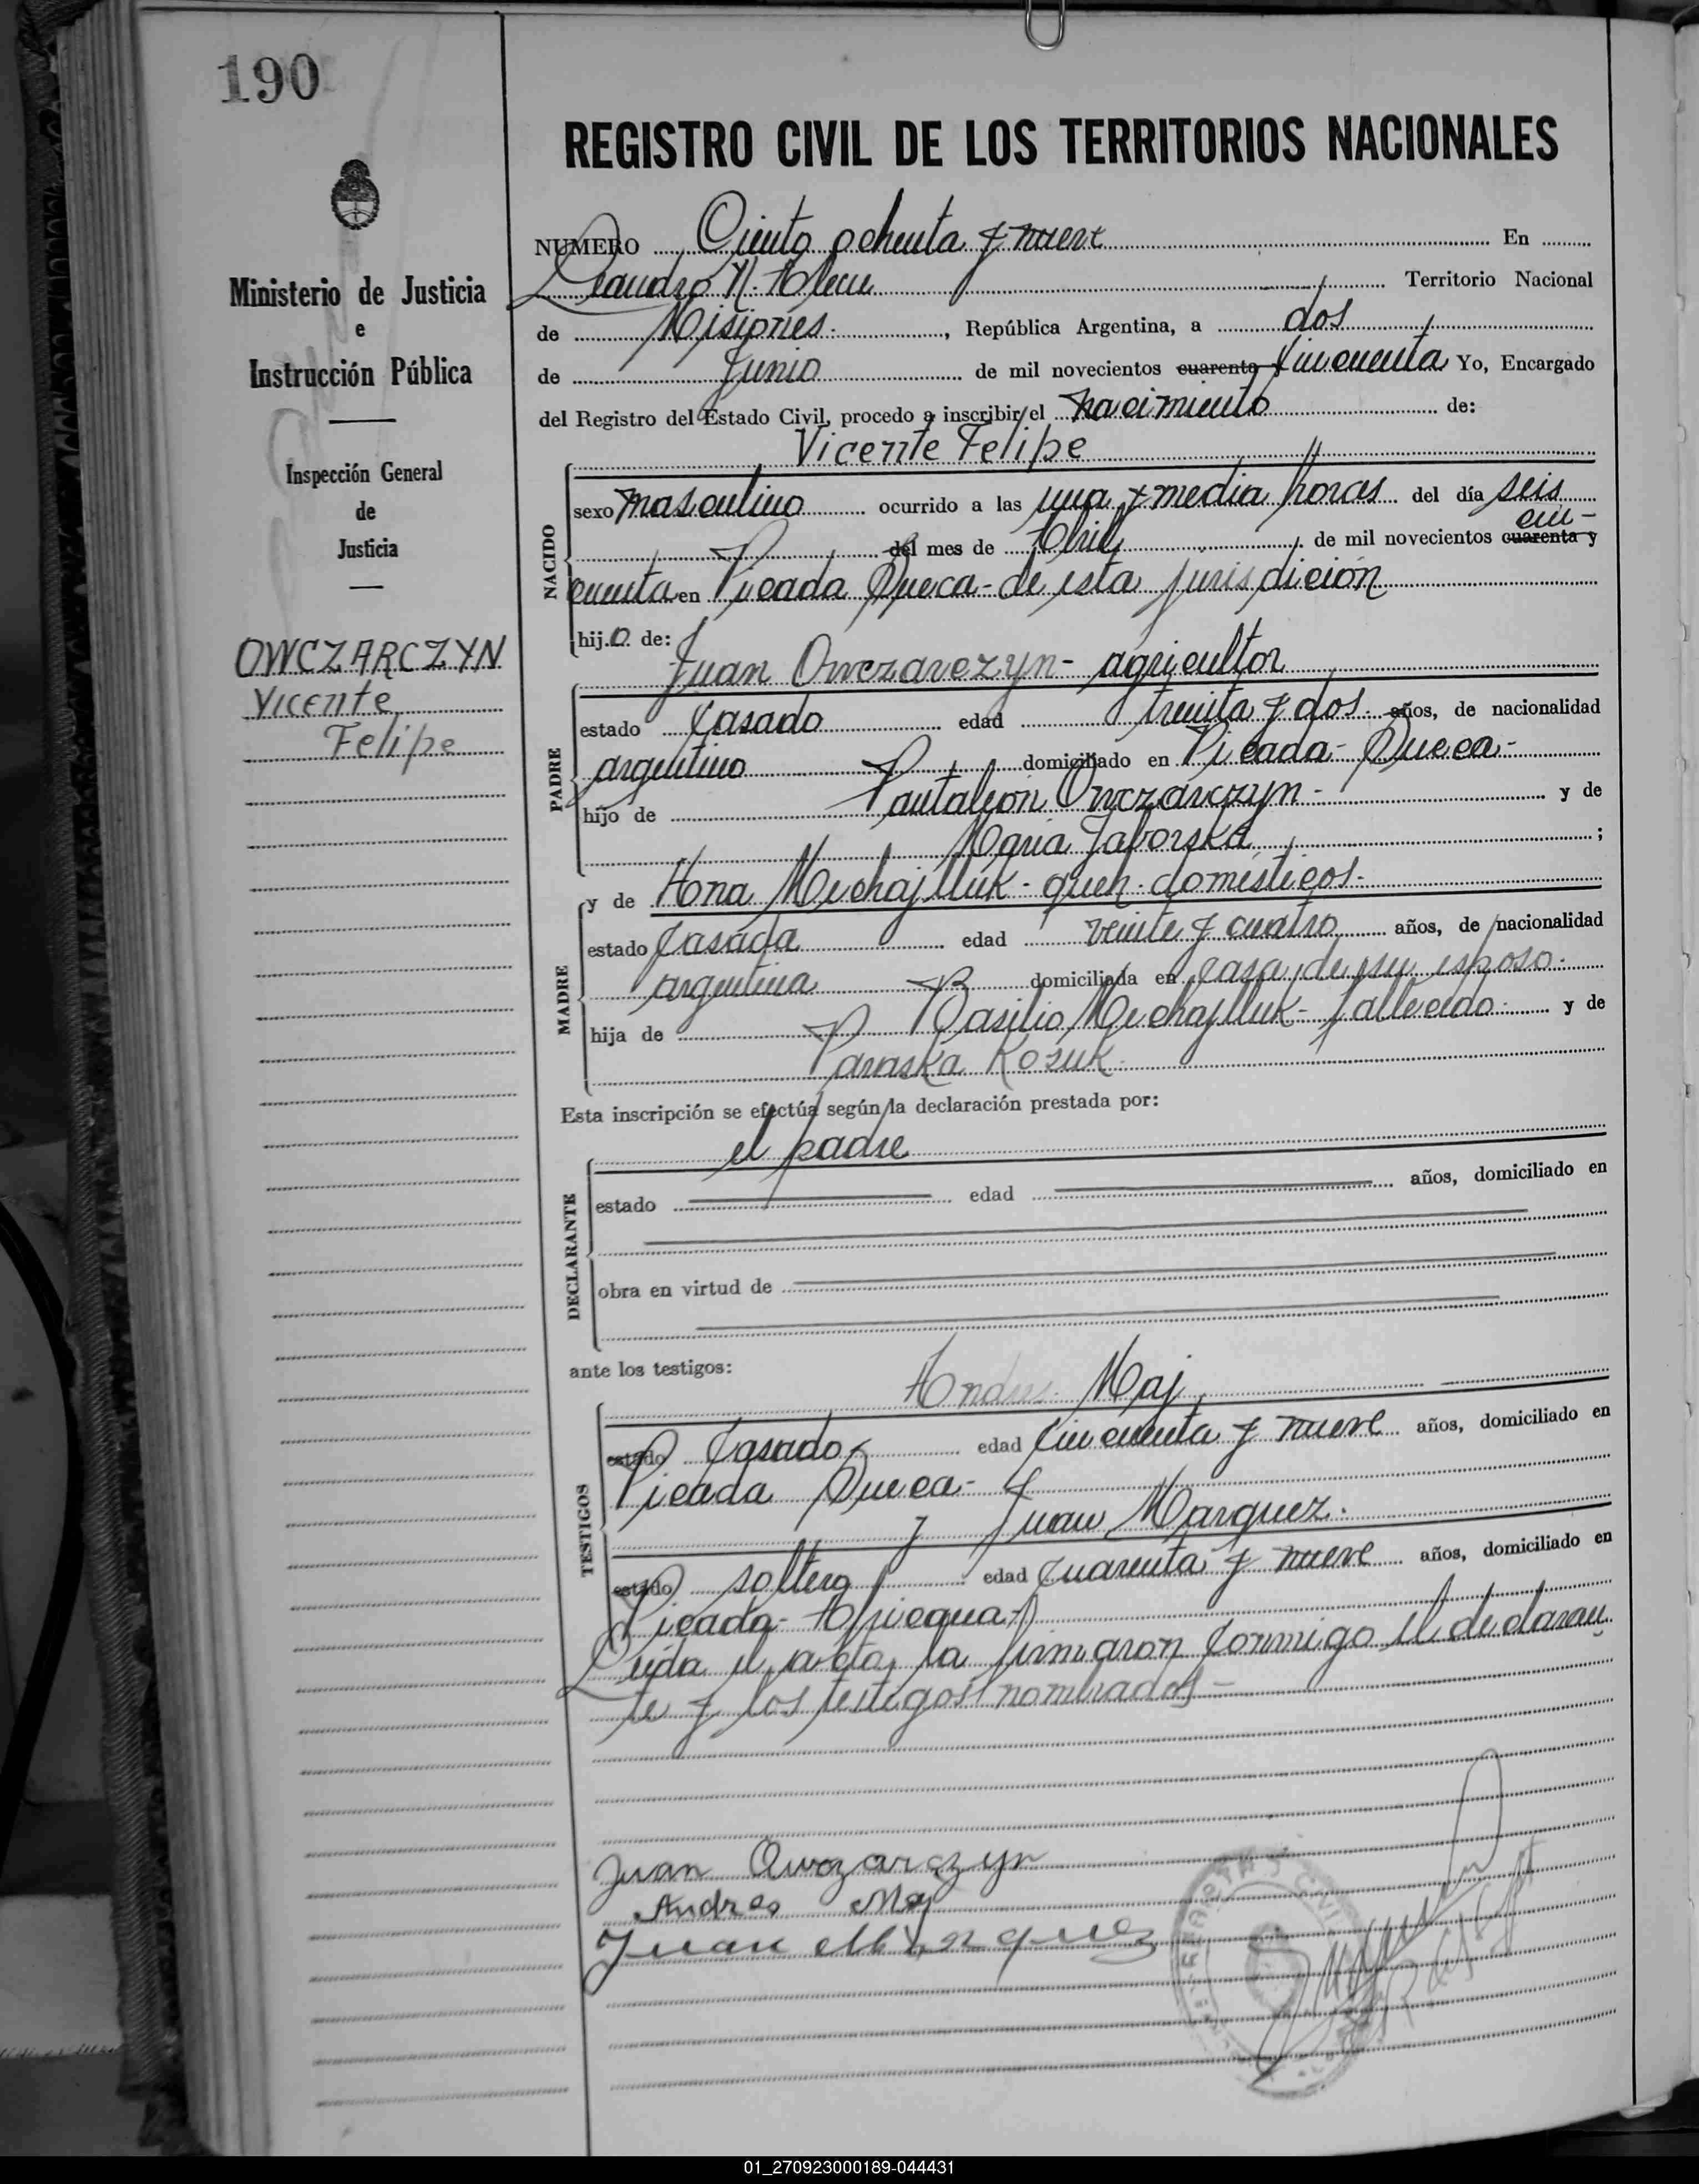 190
REGISTRO CIVIL DE LOS TERRITORIOS NACIONALES
Ministerio de Justicia
e
Instrucción Pública
Inspección General
de
Justicia
OWCZARCZYN
Vicente
Felipe
NUMERO Ciento ochenta y nueve En
Leandro N. Alem Territorio Nacional
de Misiones. , República Argentina, a dos
de Junio de mil novecientos cuarenta y cincuenta Yo, Encargado
del Registro del Estado Civil, procedo a inscribir el nacimiento de:
Vicente Felipe
NACIDO
sexo masculino ocurrido a las una y media horas del día seis
del mes de Abril de mil novecientos cuarenta y cin-
cuenta en Picada Sueca - de esta jurisdición
hijo de:
Juan Owczarczyn - agricultor
PADRE
estado Casado edad treinta y dos. años, de nacionalidad
argentino domiciliado en Picada - Sueca -
hijo de Pantaleón Owczarczyn - y de
María Jaborska ;
MADRE
y de Ana Michajlluk - queh. domésticos.
estado Casada edad veinte y cuatro años, de nacionalidad
argentina domiciliada en casa de su esposo.
hija de Basilio Michajlluk - fallecido y de
Paraska Kozuk.
Esta inscripción se efectúa según la declaración prestada por:
el padre
DECLARANTE
estado edad años, domiciliado en
obra en virtud de
ante los testigos:
Andres Maj
TESTIGOS
estado Casado edad Cincuenta y nueve años, domiciliado en
Picada Sueca - y
Juan Marquez.
estado soltero edad Cuarenta y nueve años, domiciliado en
Picada - Azpicagua.
Leída el acta, la firmaron conmigo el declaran
te y los testigos nombrados -
Juan Owczarczyn
Andres Maj
Juan Marquez
01_270923000189-044431